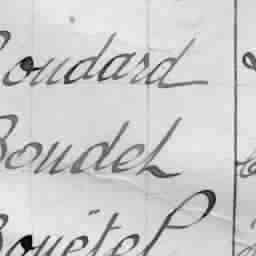 Boudard
Boudet
Bouétel